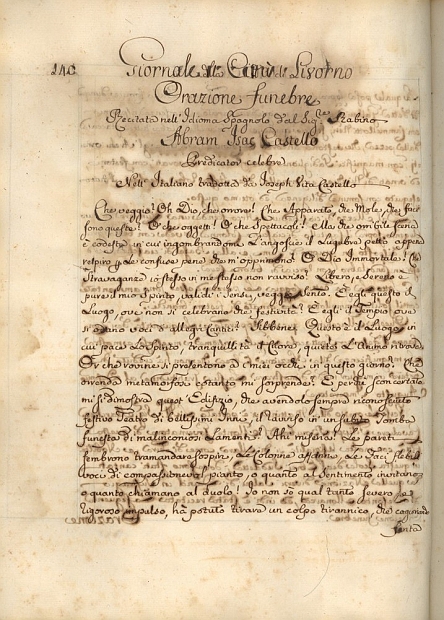 140
Giornale Livorno
Orazione funebre
Recitata nell'Idioma Spagnolo dal Sig.re Rabino
Abram Isac Castello
Predicator celebre
Nell'Italiano tradotta da Joseph Vita Castello
Che veggio? Oh Dio, che orrore! Che Apparato, che Mole, che faci
sono queste? O che oggetti! O che Spettacoli! Ella è orribile scena
è codesta in cui ingombrandomi L'angoscie il Lugubre petto appena
respiro p le confuse pene che m'opprimono. O Dio Immortale! Che
Stravaganza io stesso in me stesso non ravviso? Libero, e sereno è
pure il mio Spirito, validi i sensi, vegge Egli questo il
Luogo, ove non si celebrano che festività? È egli il Tempio ove
si voci di allegri Cantici? Ebbene, Questo è il Luogo in
cui pace Lo Spirito, tranquillità il Cuore, quiete L'Animo
Or che rovine si presentono a' miei occhi in questo giorno? Che
orrenda metamorfosi cotanto mi sorprende? E perché sconcertato
mi si dimostra quest'Edifizio, che avendolo sempre riconosciuto
festivo Teatro di bellissimi Inni, il ravviso in un subito Tomba
funesta di malinconosi Lamenti? Ahi miseria! Le pareti
sembrono tramandare sospiri, Le Colonne affanni, Le faci flebili
voci di compassionevol pianto, o quanto al Sentimento invitano
o quanto chiamano al duolo! Io non so qual tanto severo, e
rigoroso impulso, ha potuto tirare un colpo tirannico, che